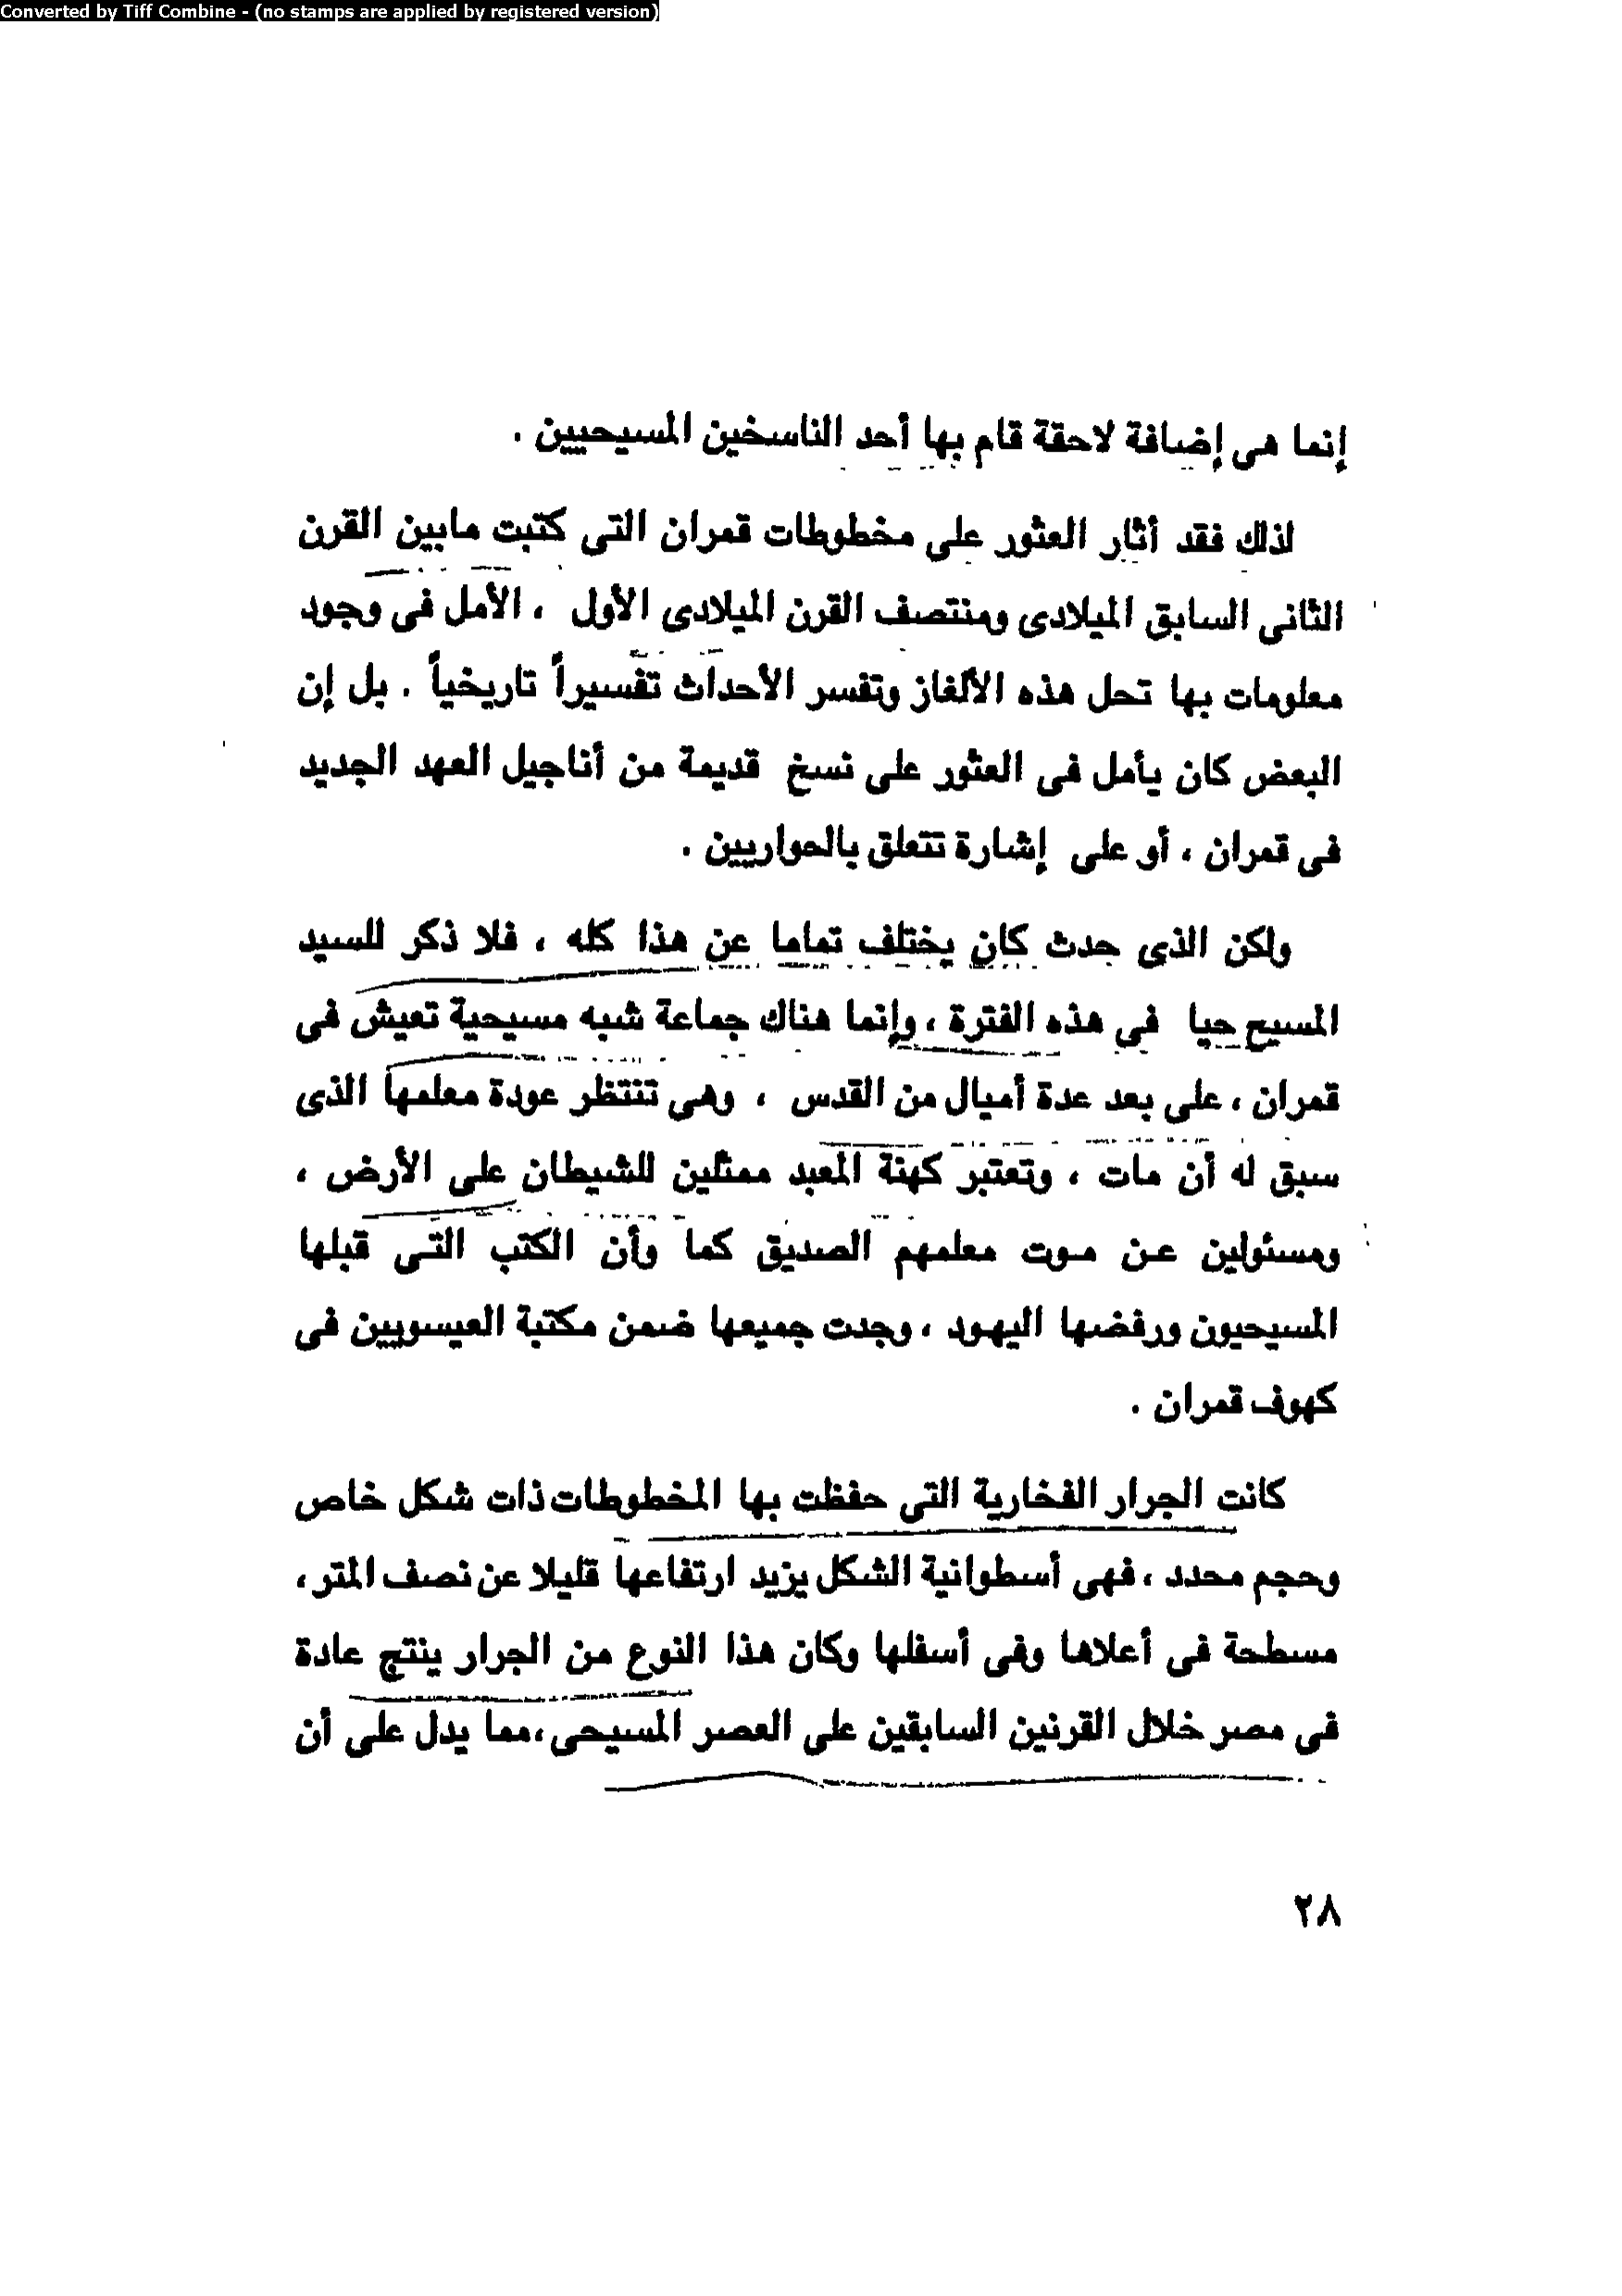 Converted by Tiff Combine - (no stamps are applied by registered version)
إنما هى إضافة لاحقة قام بها أحد الناسخين المسيحيين .
لذلك فقد أثار العثور على مخطوطات قمران التى كتبت مابين القرن
الثانى السابق الميلادى ومنتصف القرن الميلادى الأول ، الأمل فى وجود
معلومات بها تحل هذه الألغاز وتفسر الأحداث تفسيراً تاريخياً . بل إن
البعض كان يأمل فى العثور على نسخ قديمة من أناجيل العهد الجديد
فى قمران ، أو على إشارة تتعلق بالحواريين .
ولكن الذى حدث كان يختلف تماما عن هذا كله ، فلا ذكر للسيد
المسيح حيا فى هذه الفترة ، وإنما هناك جماعة شبه مسيحية تعيش فى
قمران ، على بعد عدة أميال من القدس ، وهى تنتظر عودة معلمها الذى
سبق له أن مات ، وتعتبر كهنة المعبد ممثلين للشيطان على الأرض ،
ومسئولين عن موت معلمهم الصديق كما وأن الكتب التى قبلها
المسيحيون ورفضها اليهود ، وجدت جميعها ضمن مكتبة العيسويين فى
كهوف قمران .
كانت الجرار الفخارية التى حفظت بها المخطوطات ذات شكل خاص
وحجم محدد ، فهى أسطوانية الشكل يزيد ارتفاعها قليلا عن نصف المتر ،
مسطحة فى أعلاها وفى أسفلها وكان هذا النوع من الجرار ينتج عادة
فى مصر خلال القرنين السابقين على العصر المسيحى ،مما يدل على أن
٢٨